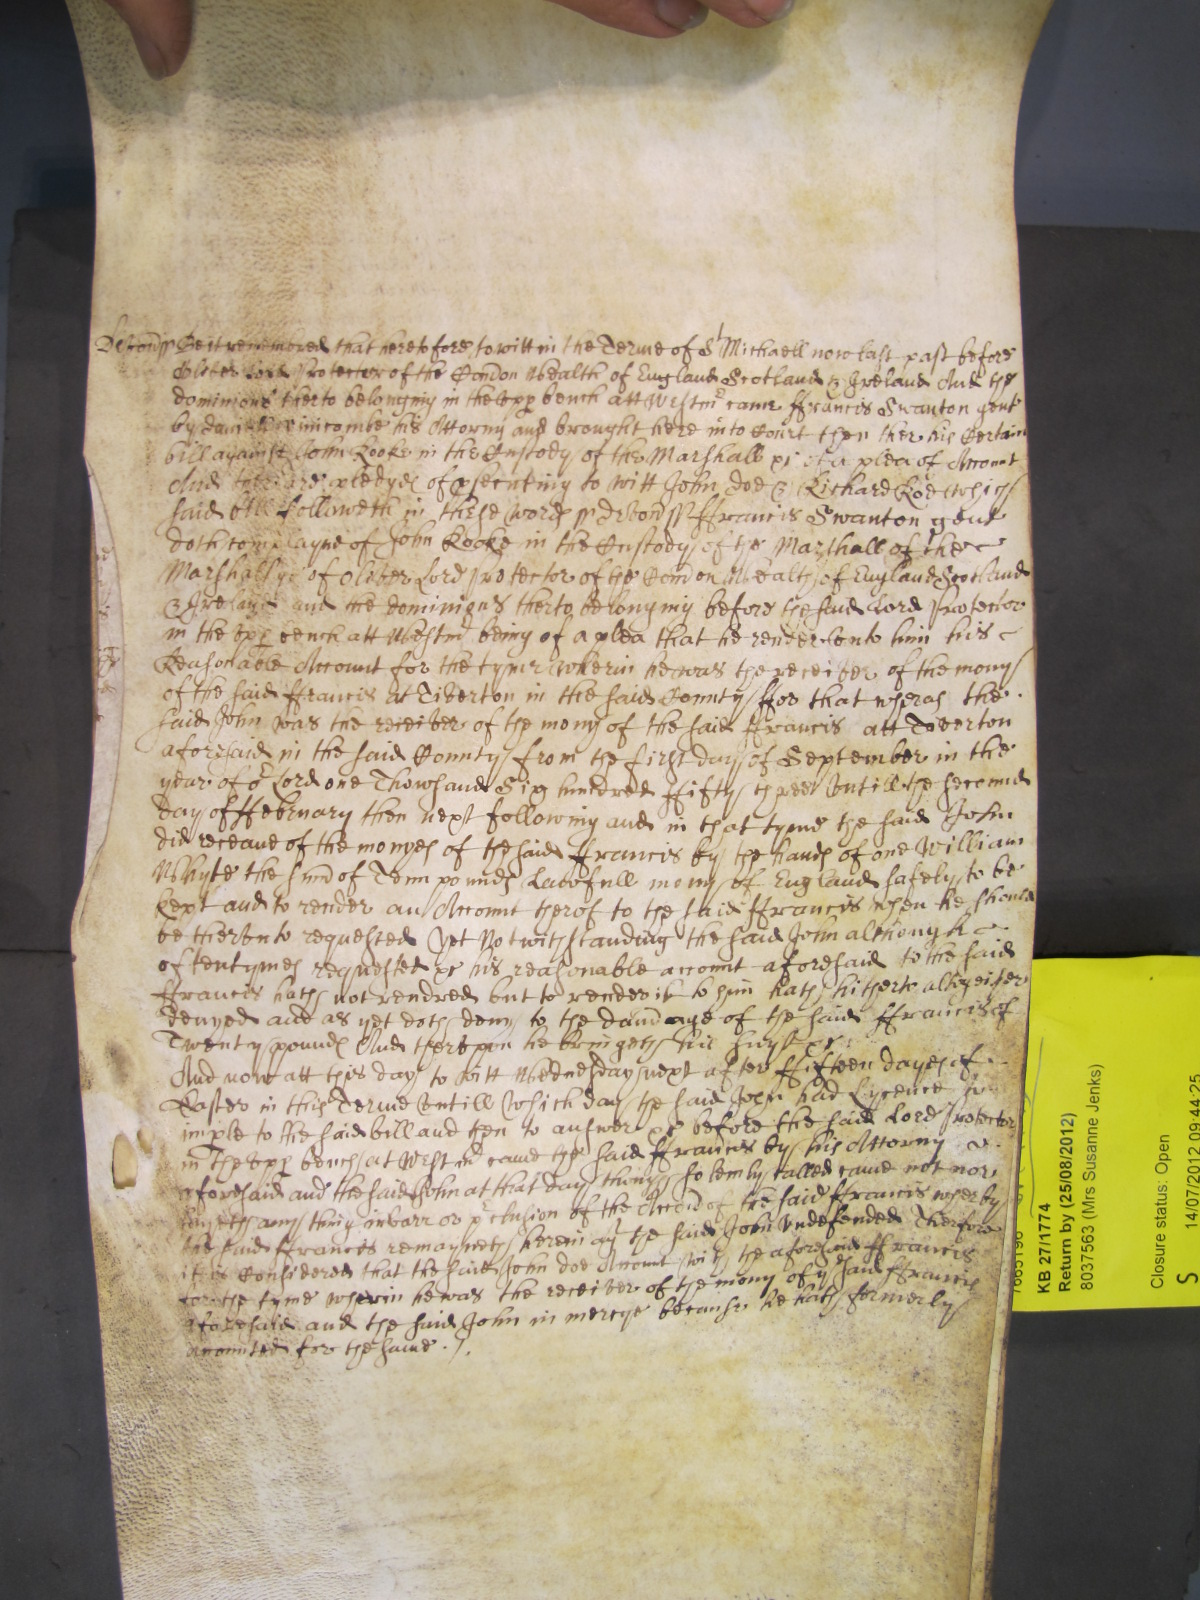 Devon ss Be it remembred that heretofore to witt in the Terme of St Michaell now last past before
Oliver Lord Protector of the Comon Wealth of England Scotland & Ireland And the
dominions therto belonging in the upp bench att Westmr came ffrancis Swanton gent
by his Attorny and brought here into Court then ther his Certain
bill against John Cooke in the Custody of the Marshall &c of a plea of Account
And ther are pledges of psecuting to witt John Doe & Richard Roe which
said bill followeth in these words ss Devon ss ffrancis Swanton gent
doth complayne of John Cooke in the Custody of the Marshall of the
Marshallsye of Oliver Lord Protector of the Comon Wealth of England Scotland
& Ireland and the dominions therto belonging before the said Lord Protector
in the upp bench att Westmr being of a plea that he render unto him his
Reasonable Account for the tyme wherin he was the receiver of the mony
of the said ffrancis at Tiverton in the said County ffor that wheras the
said John was the receiver of the mony of the said ffrancis att Tiverton
aforesaid in the said County from the first day of September in the
year of or Lord one Thowsand Six hundred ffifty three Untill the second
day of ffebruary then next following and in that tyme the said John
did receave of the monyes of the said ffrancis by the hands of one William
Whyte the sum of Tenn pounds Lawfull mony of England safely to be
kept and to render an Account therof to the said ffrancis when he should
be therunto requested Yet Notwithstanding the said John although
oftentymes requested &c his reasonable account aforesaid to the said
ffrancis hath not rendred but to render it to him hath hitherto altogeither
denyed and as yet doth deny to the damage of the said ffrancis of
Twenty pounds And therupon he bringeth his suyt &c
And now att this day to witt Wednesday next after ffifteen dayes of
Easter in this Terme Untill which day the said John had Lycence to
imple to the said bill and then to answer &c before the said Lord Protector
in the upp bench at Westmr came the said ffrancis by his Attorny
aforesaid and the said John at that day solemly called came not nor
any thing in barr or pclusion of the Accon of the said ffrancis wherby
the said ffrancis remayneth therein agt the said John Undefended Therfore
it is Considered that the said John doe Account with the aforesaid ffrancis
for the tyme wherin he was the receiver of the mony of ye said ffrancis
aforesaid and the said John in mercye because he hath formerly
accounted for the same
KB 27/1774
Return by (25/08/2012)
8037563 (Mrs Susanne Jenks)
Closure status: Open
S 14/07/2012 09:44:25